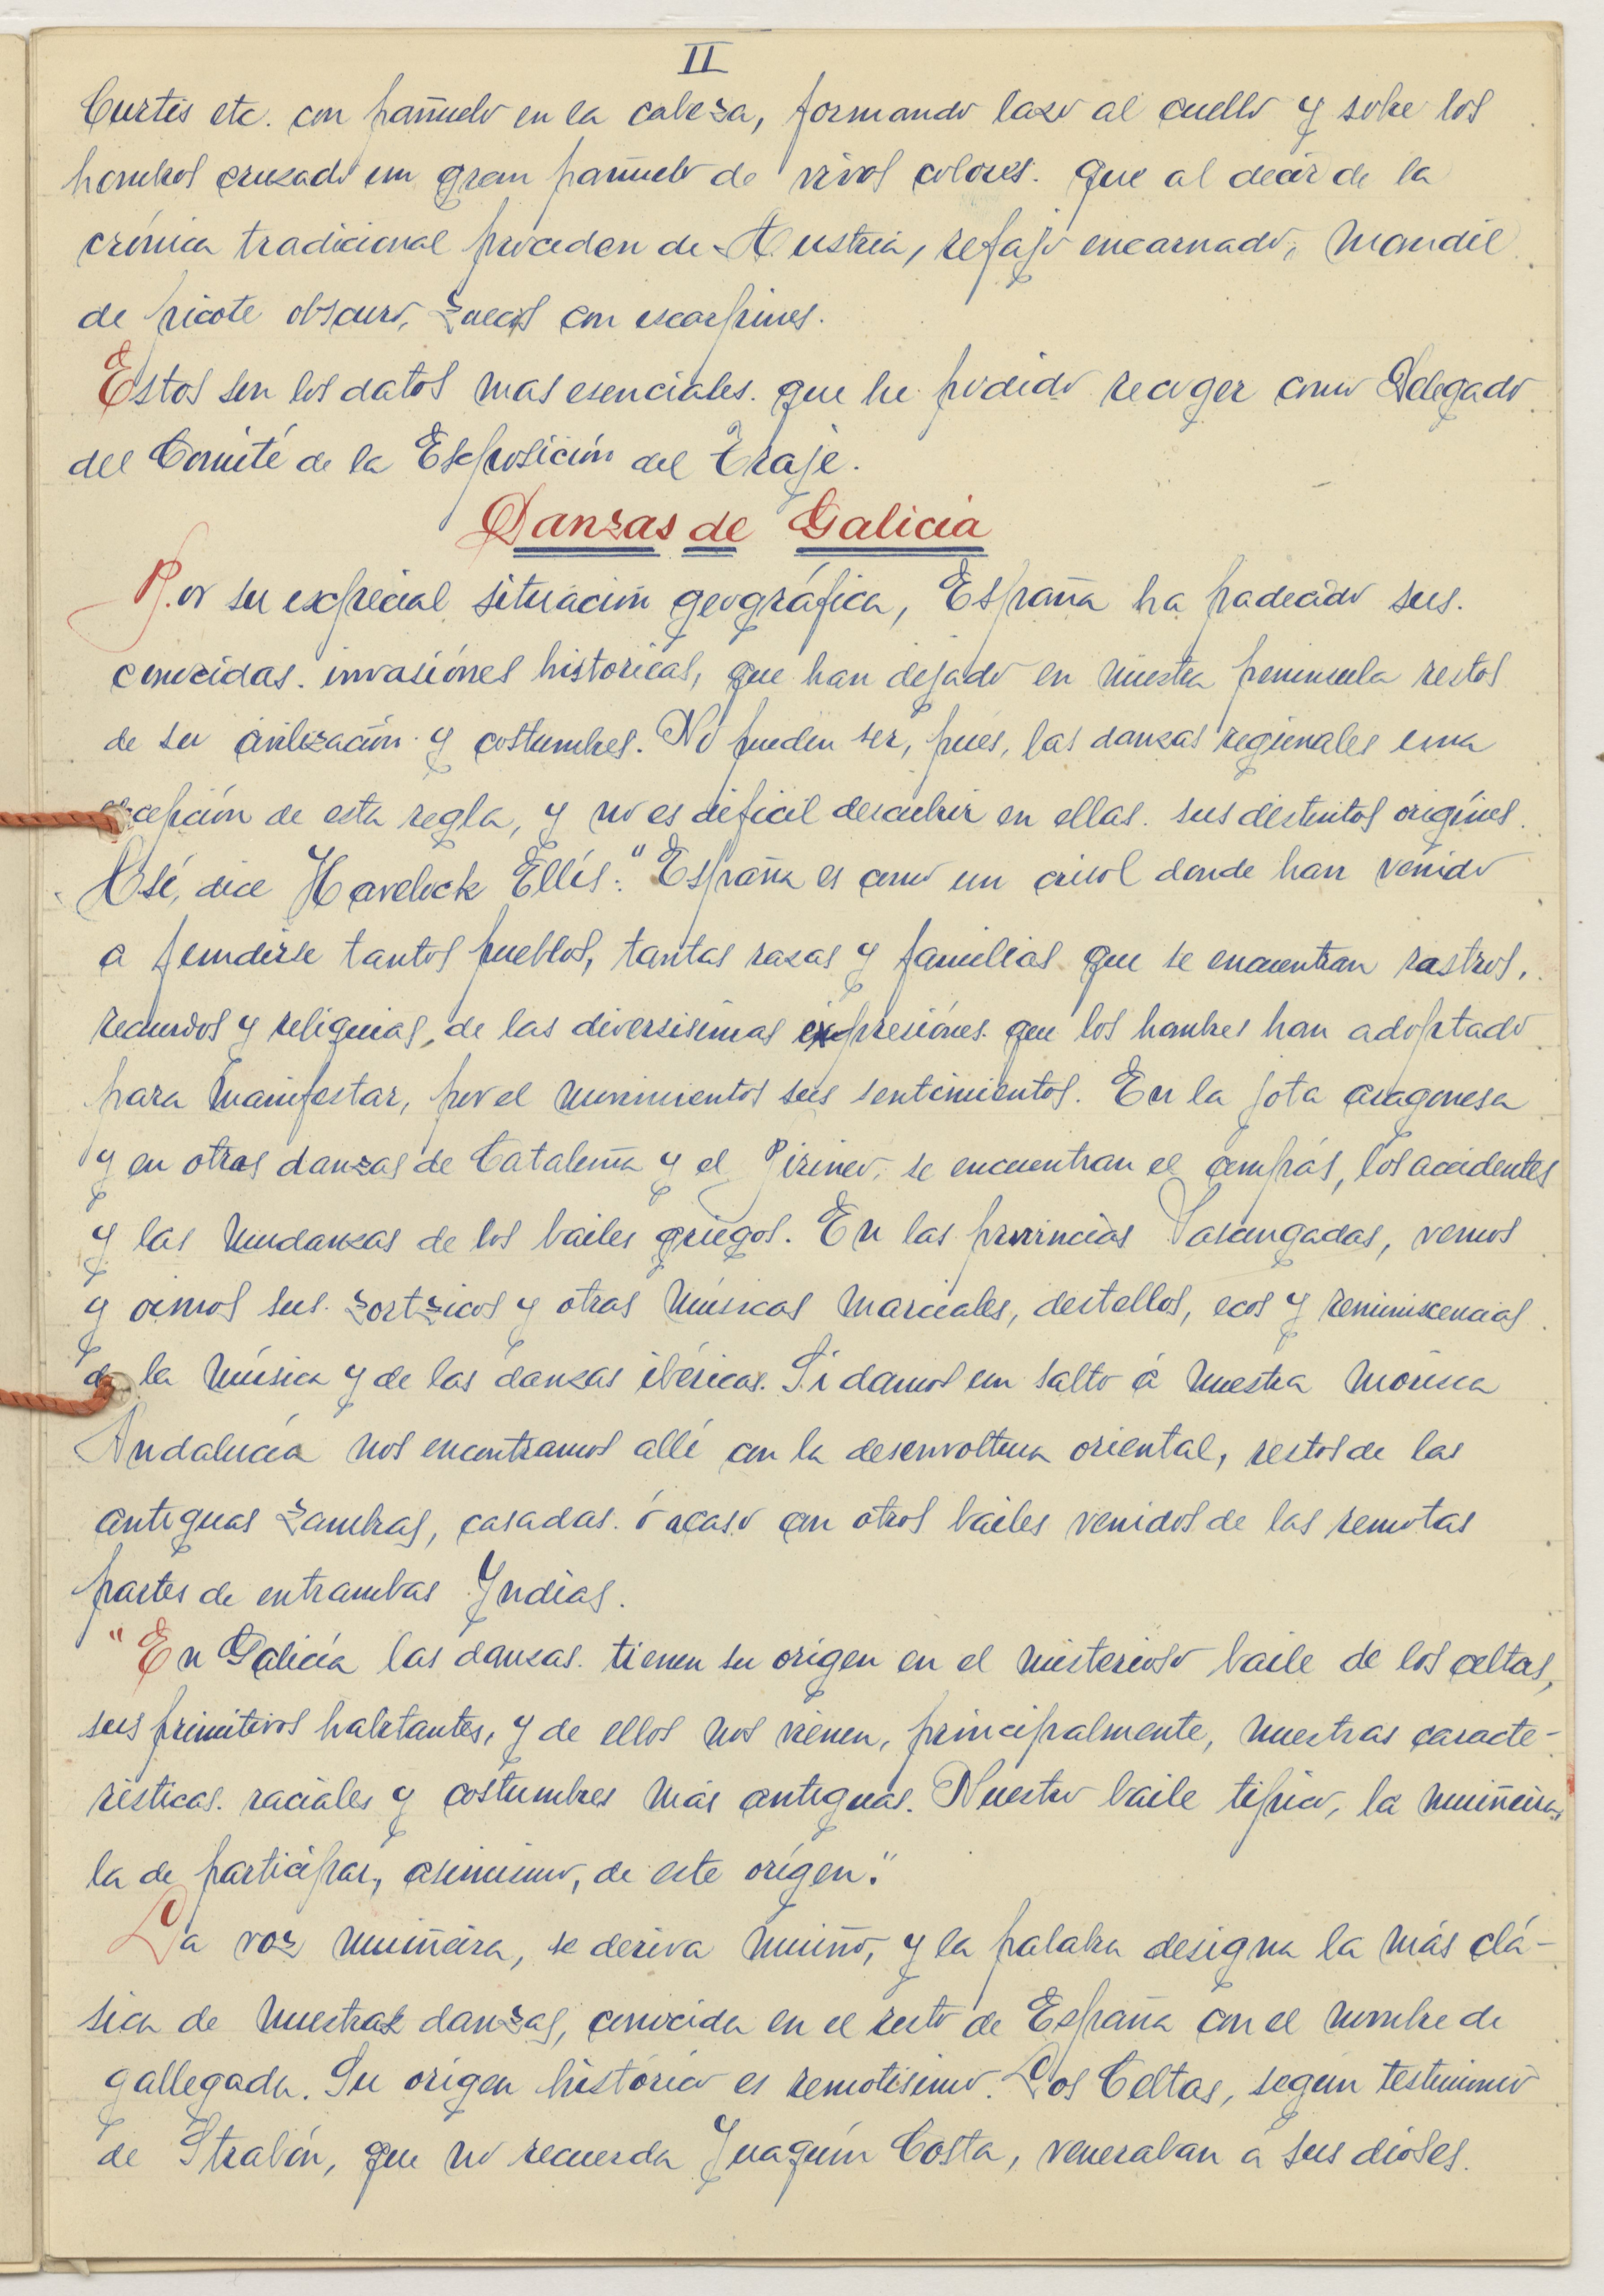 II
Curtis etc. con pañuelo en la cabeza, formando lazo al cuello y sobre los
hombros cruzado un gran pañuelo de vivos colores. que al decir de la
crónica tradicional proceden de Austria, refajo encarnado, mandil
de picote obscuro, zuecos con escarpines.
Estos son los datos mas esenciales. que he podido recoger como Delegado
del Comité de la Exposición del Traje.
Danzas de Galicia
Por su expecial situación geográfica, España ha padecido sus.
conocidas. invasiónes historicas, que han dejado en nuestra peninsula restos
de su civilización y costumbres. No pueden ser, pués, las danzas regionales una
excepción de esta regla, y no es dificil descubrir en ellas. sus distintos origines.
Asi, dice Havelock Ellis: "España es como un crisol donde han venido
a fundirse tantos pueblos, tantas razas y familias que se encuentran rastros,
recuerdos y reliquias, de las diversisimas expresiónes. que los hombres han adoptado
para manifestar, por el movimientos sus sentimientos. En la jota aragonesa
y en otras danzas de Cataluña y el Pirineo, se encuentran el compás, los accidentes
y las mudanzas de los bailes griegos. En las provincias Vascongadas, vemos
y oimos sus. zortzicos y otras músicas marciales, destellos, ecos y reminiscencias
de la música y de las danzas ibéricas. Si damos un salto á nuestra morisca
Andalucía nos encontramos alli con la desenvoltura oriental, restos de las
antiguas zambras, casadas. ó acaso con otros bailes venidos de las remotas
partes de entrambas Yndias.
"En Galicia las danzas. tienen su origen en el misterioso baile de los celtas,
sus primitivos habitantes, y de ellos nos vienen, principalmente, nuestras caracte-
risticas. raciales y costumbres más antiguas. Nuestro baile tipico, la muiñeira,
ha de participar, asimismo, de este origen."
La voz muiñeira, se deriva muiño, y la palabra designa la más clá-
sica de nuestras danzas, conocida en el resto de España con el nombre de
gallegada. Su origen histórico es remotisimo. Los Celtas, según testimonio
de Strabón, que no recuerda Juaquín Costa, veneraban a sus dioses.